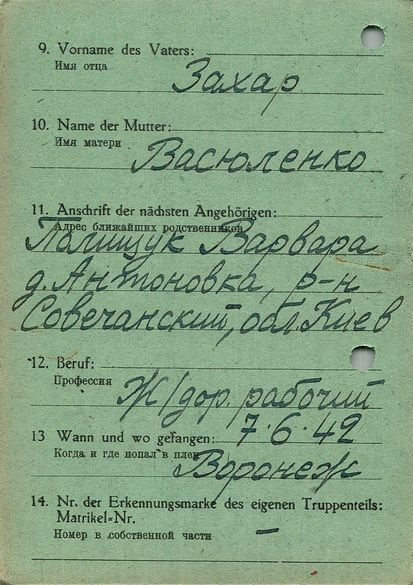 9. Vorname des Vaters:
Имя отца
Захар
10. Name der Mutter:
Имя матери
Васюленко
11. Anschrift der nächsten Angehörigen:
Адрес ближайших родственников
Палищук Варвара
д. Антоновка, р-н
Совечанский, обл. Киев
12. Beruf:
Профессия
Ж/дор. рабочий
13 Wann und wo gefangen: 7.6.42
Когда и где попал в плен
Воронеж
14. Nr. der Erkennungsmarke des eigenen Truppenteils:
Matrikel-Nr.
Номер в собственной части —